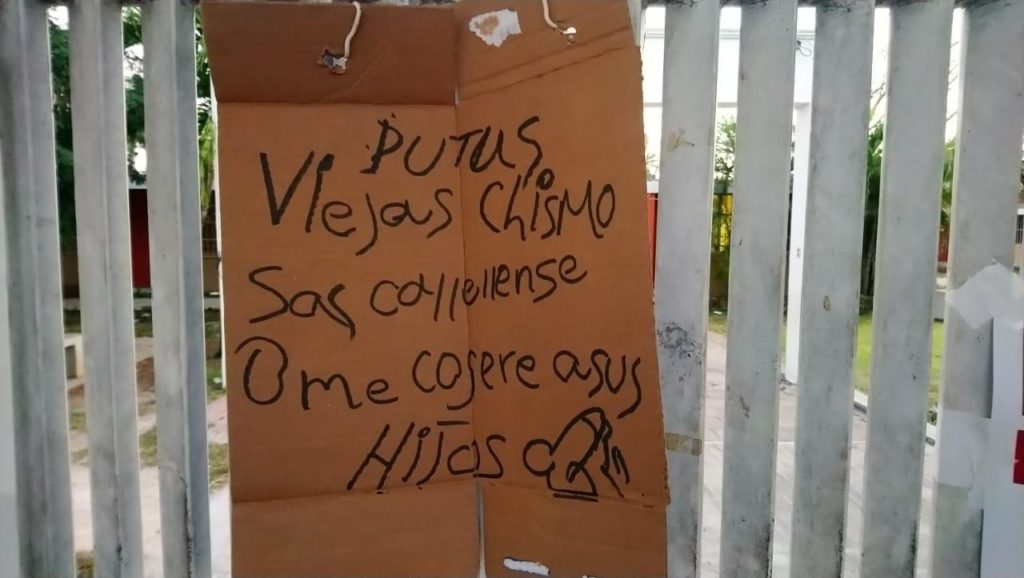 PUTAS
Viejas Chismo
Sas callellense
O me cojere asus
Hijas